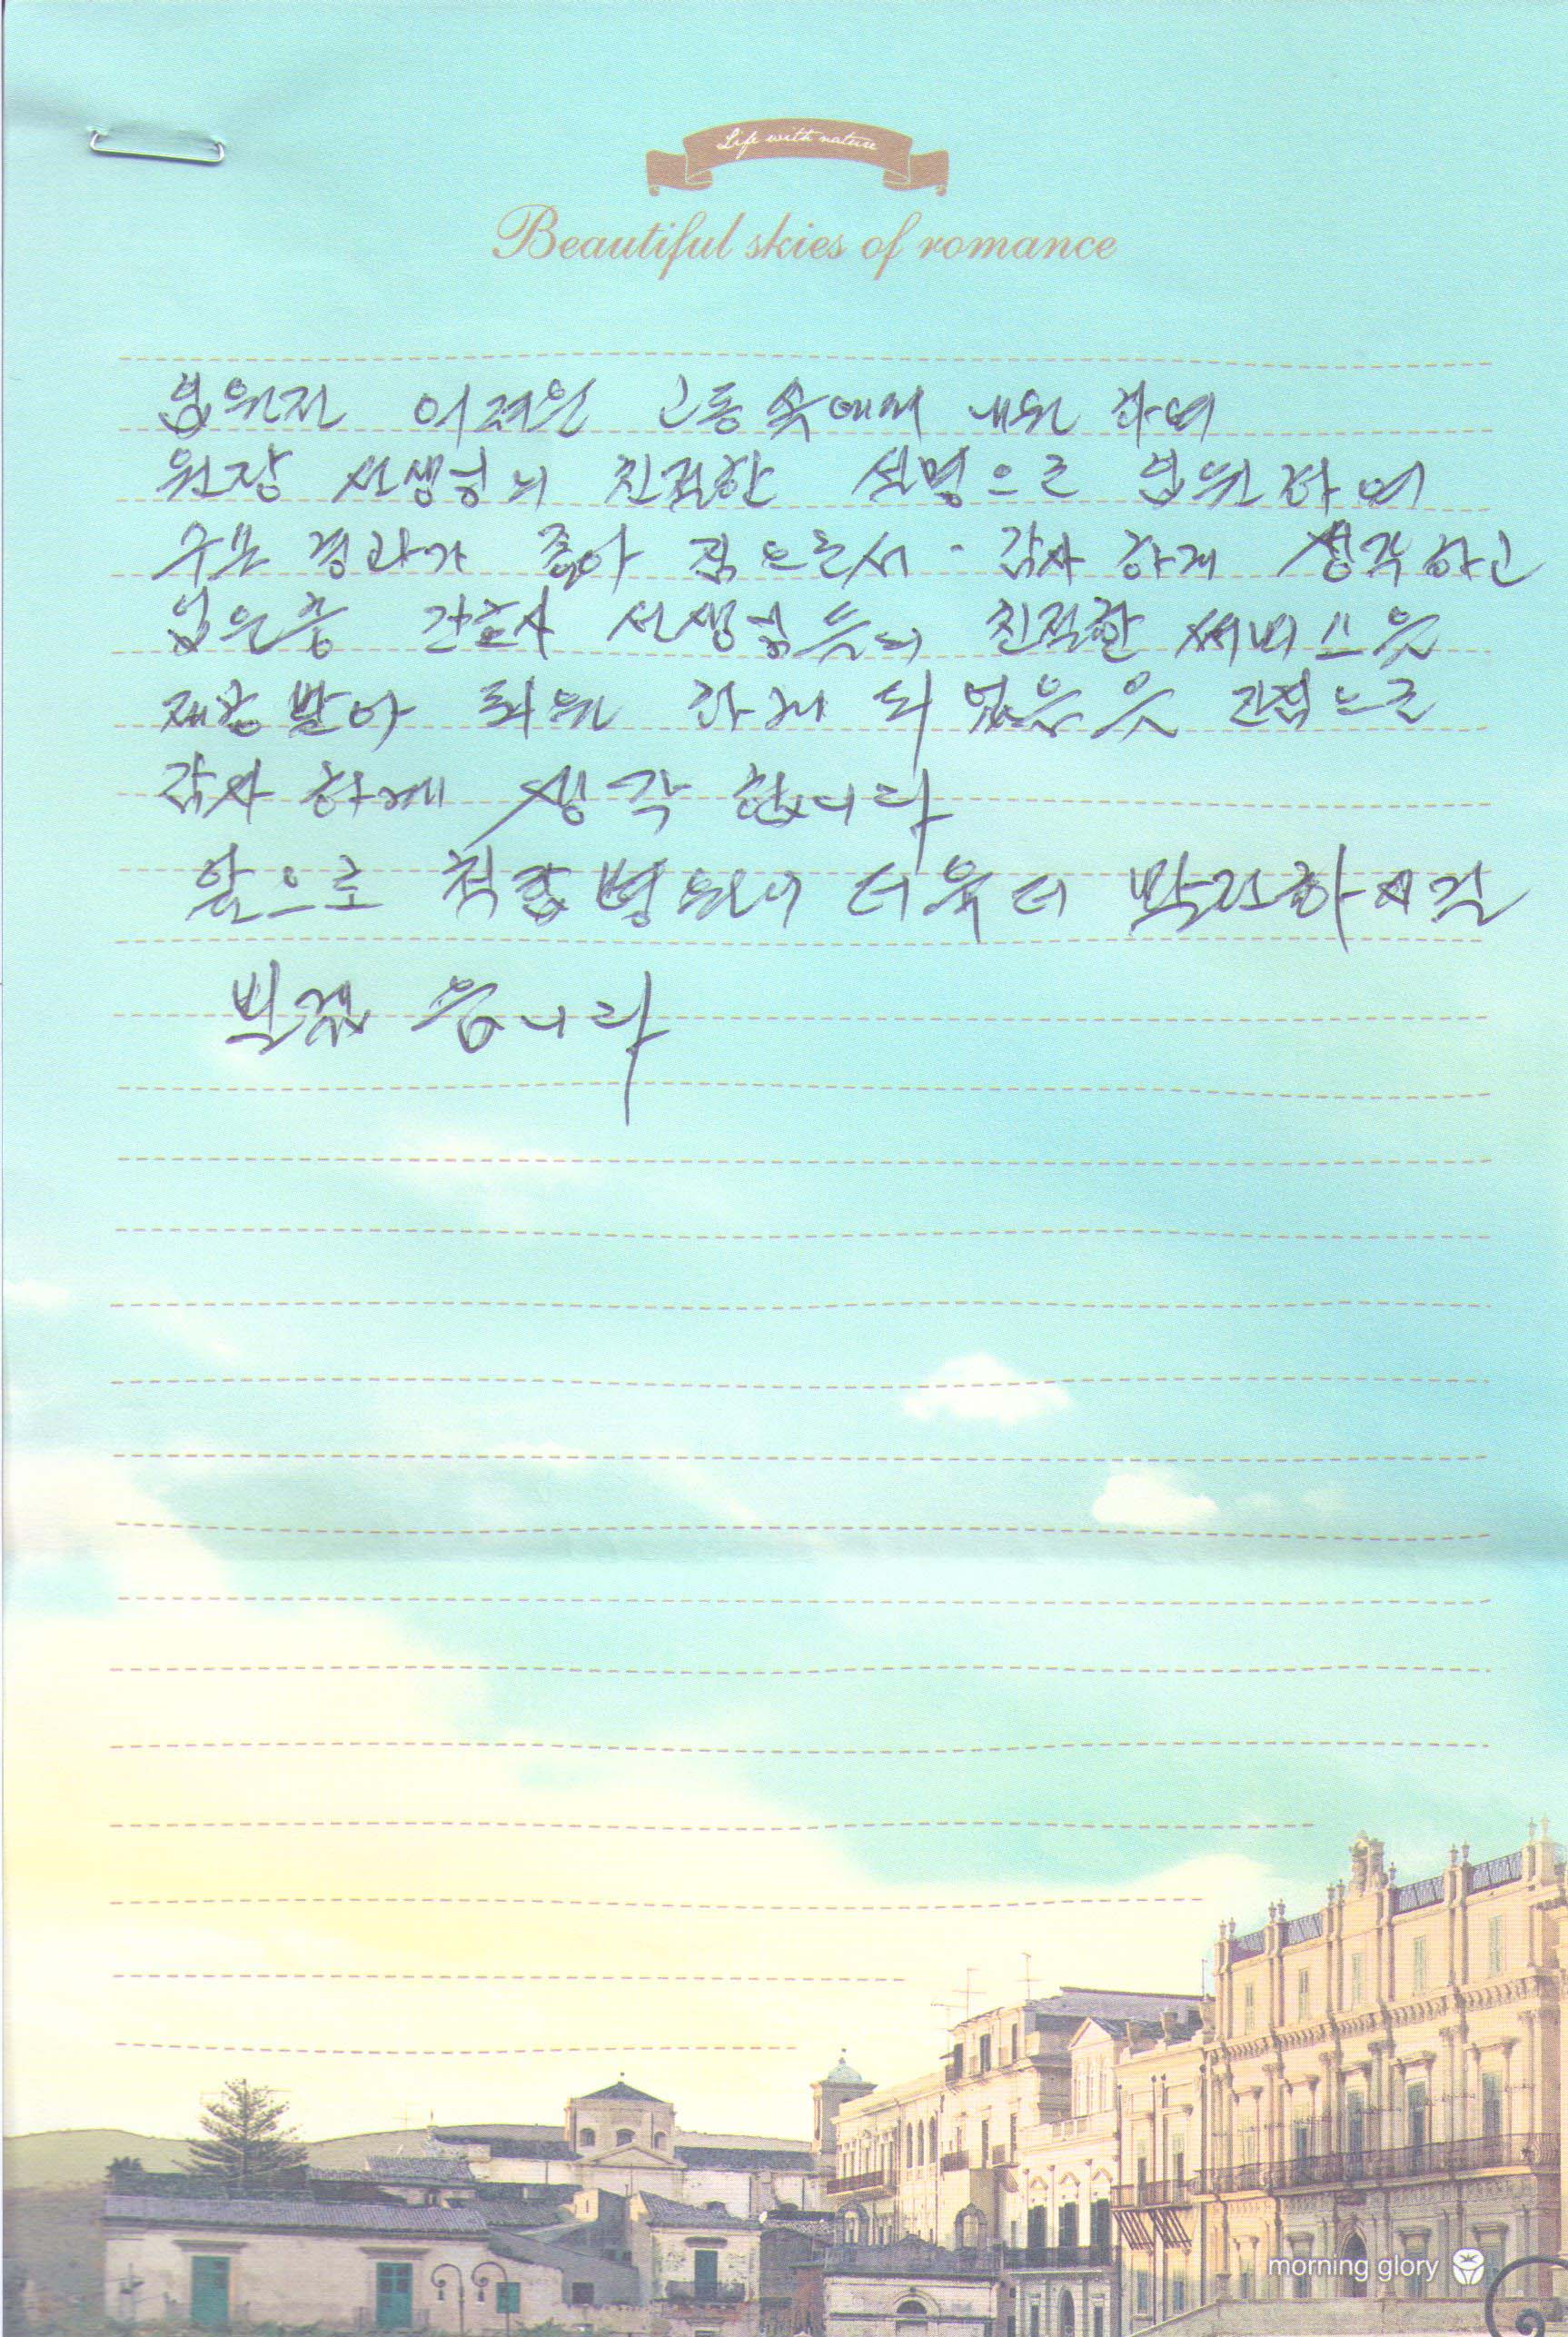 Life with nature
Beautiful skies of romance
입원전 어려운 고통속에서 내원 하여
원장 선생님의 친절한 설명으로 입원하여
수술 경과가 좋아 짐으로서 감사 하게 생각하고
입원중 간호사 선생님들의 친절한 써비스을
제공 받아 퇴원 하게 되었음을 진심으로
감사 하게 생각 합니다
앞으로 척탑병원이 더욱더 발전하시길
빌겠 읍니다
morning glory